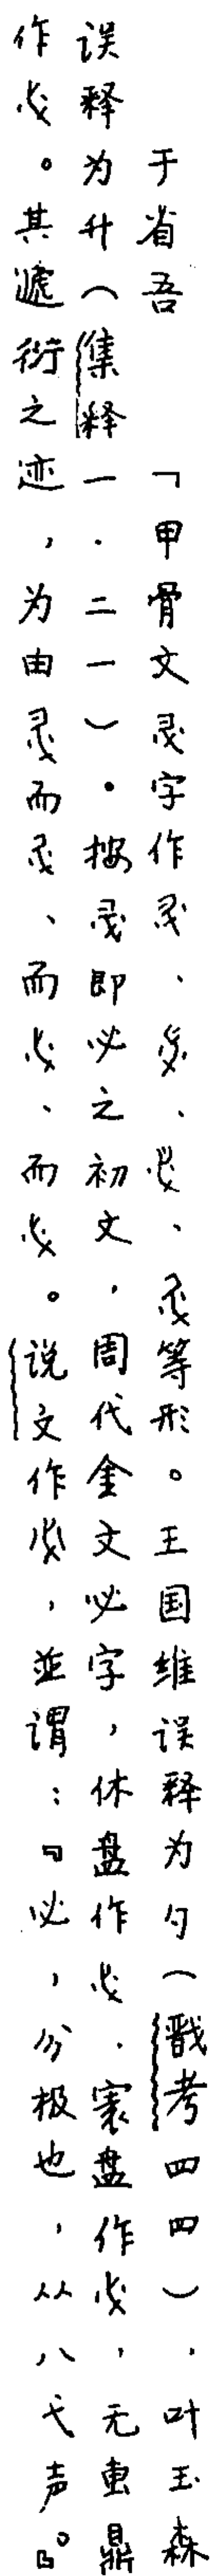 于省吾 「甲骨文字作、、、等形。王国维误释为勺（戬考四四），叶玉森
误释为升（集释一·二一）。按即必之初文，周代金文必字，休盘作，寰盘作，无叀鼎
作。其递衍之迹，为由而、而、而。说文作，并谓：『必，分极也，从八弋声』。